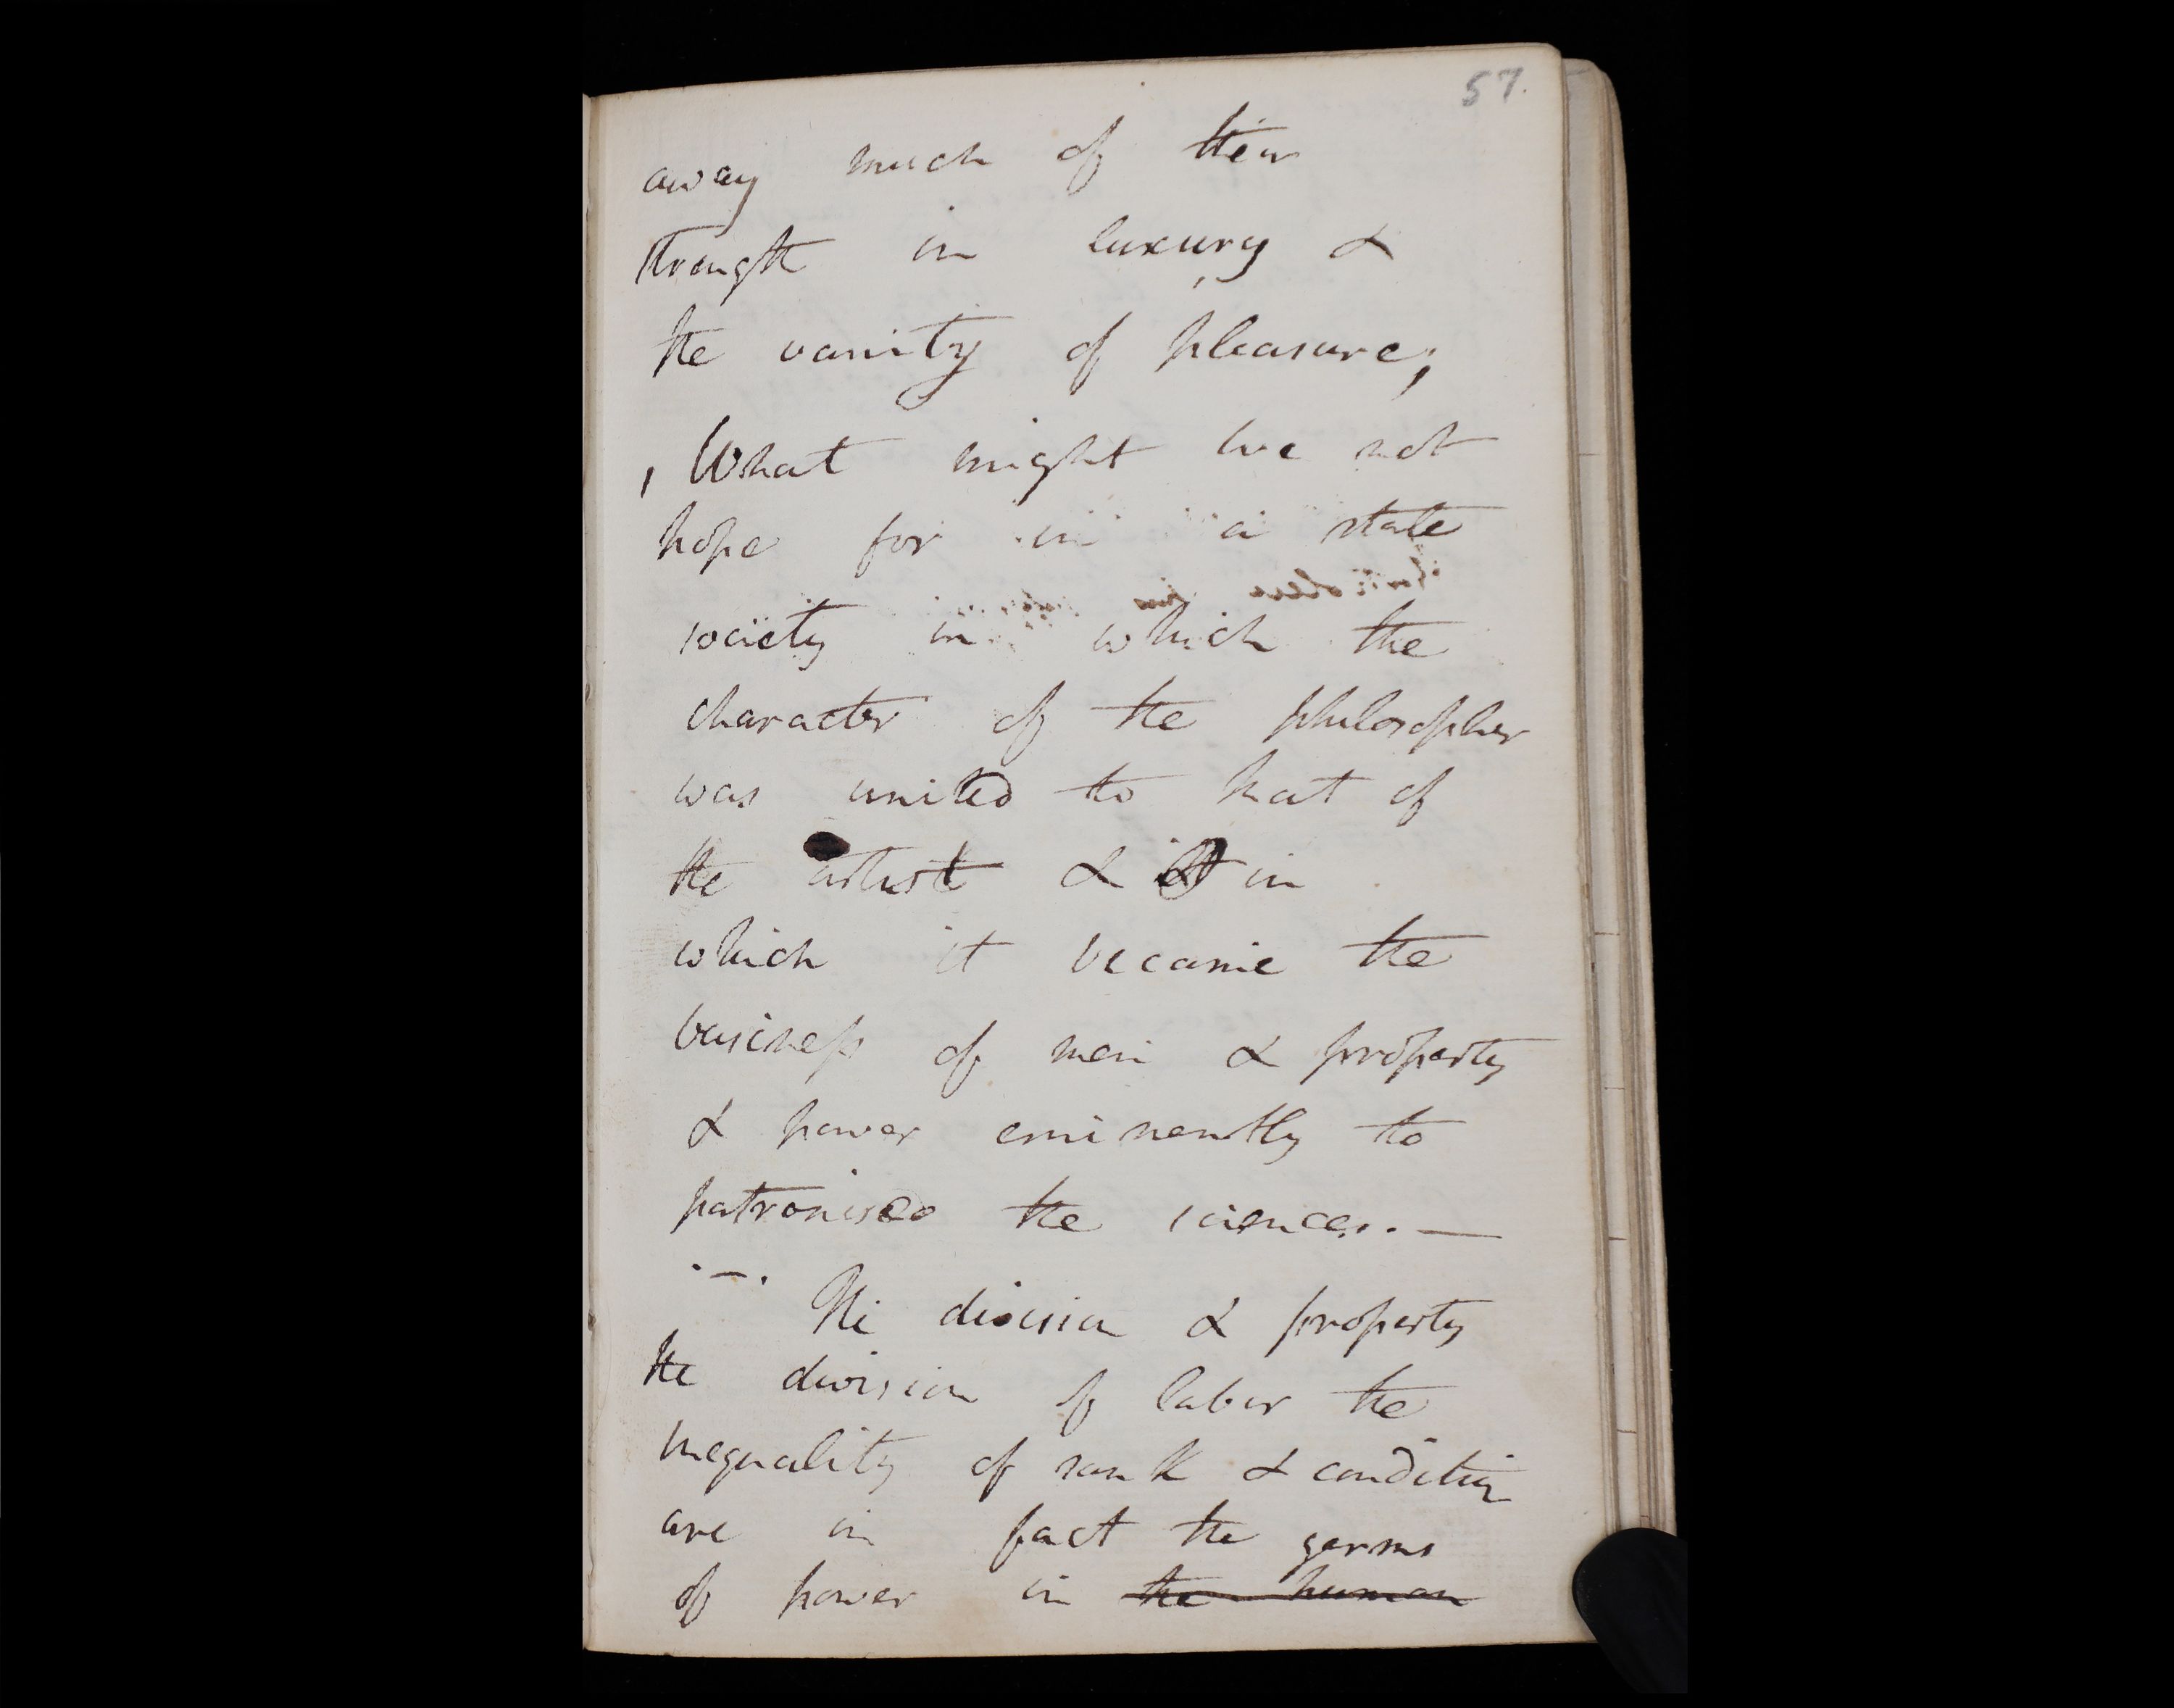 57.
away much of their
strength in luxury &
the vanity of pleasure;
, What might we not
hope for in a state
society in which the
character of the philosopher
was united to that of
the artist & in
which it became the
business of men & property
& power eminently to
patronise the sciences. —
The division & property
the division of labor the
inequality of rank & condition
are in fact the germs
of power in the human